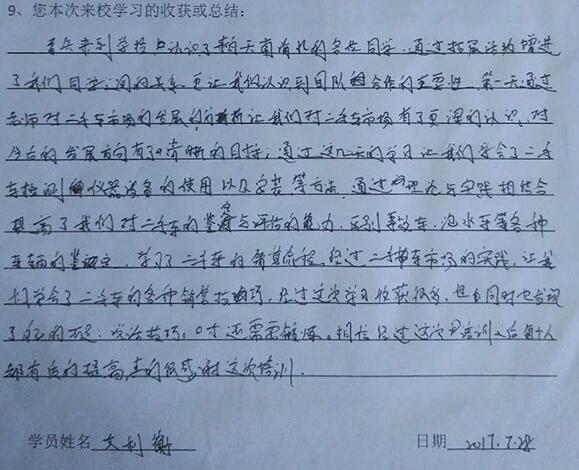 9、您本次来校学习的收获或总结:
首先来到学校认识了来自天南海北的各位同学,通过拓展活动增进
了我们同学之间的关系更让我们认识到团队合作的重要性。第一天通过
老师对二手车市场的发展的分析让我们对二手车市场有了更深的认识,对
今后的发展方向有了清晰的目标;通过这几天的学习让我们学会了二手
车检测仪器设备的使用以及安装等方法,通过理论与实践相结合
提高了我们对二手车的鉴定与评估的能力,区别事故车,泡水车等各种
车辆的鉴定,学习了二手车的销售流程,经过二手车市场的实践,让我
们学会了二手车的各种销售技巧,经过这次学习收获很多,但同时也发现
了自己的不足:说话技巧,口才还需要锻炼。相信经过这次培训之后每个人
都有质的提高真的很感谢这次培训.
学员姓名 文利衡 日期 2017.7.28